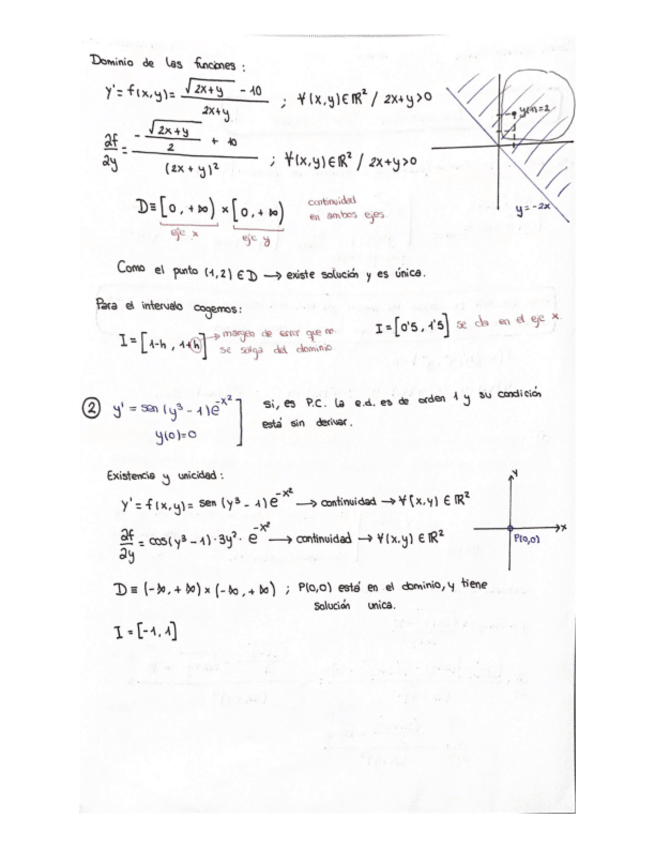 Dominio de las funciones:
y' = f(x,y) = (√(2x+y) - 10) / (2x+y) ; ∀(x,y) ∈ ℝ² / 2x+y>0
∂f/∂y = (-√(2x+y)/2 + 10) / (2x+y)² ; ∀(x,y) ∈ ℝ² / 2x+y>0
y(1)=2
y=-2x
D ≡ [0, +∞) × [0, +∞) continuidad
en ambos ejes.
eje x eje y
Como el punto (1,2) ∈ D → existe solución y es única.
Para el intervalo cogemos:
I = [1-h, 1+h] → margen de error que no
se salga del dominio
I = [0'5, 1'5] se da en el eje x.
② y' = sen(y³ - 1)e^(-x²)
y(0)=0
Si, es P.C. la e.d. es de orden 1 y su condición
está sin derivar.
Existencia y unicidad:
y' = f(x,y) = sen(y³ - 1)e^(-x²) → continuidad → ∀(x,y) ∈ ℝ²
∂f/∂y = cos(y³ - 1)·3y²·e^(-x²) → continuidad → ∀(x,y) ∈ ℝ²
y
x
P(0,0)
D ≡ (-∞, +∞) × (-∞, +∞) ; P(0,0) está en el dominio, y tiene
solución unica.
I = [-1, 1]